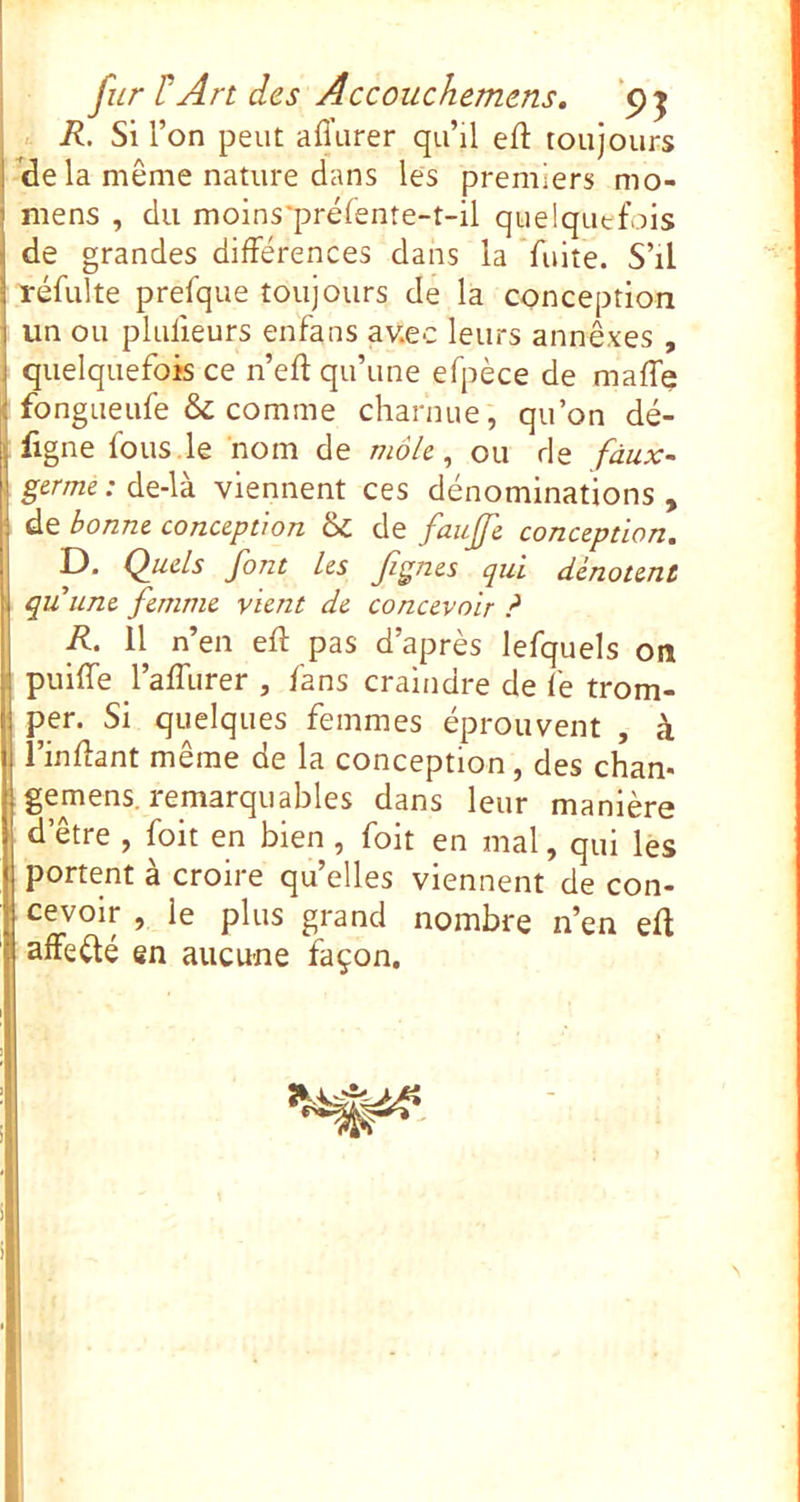 ſur l'Art des Accouchemens. 93
R. Si l'on peut aſſurer qu'il eſt toujours
de la même nature dans les premiers mo-
mens , du moins préſente-t-il quelquefois
de grandes différences dans la ſuite. S'il
réſulte preſque toujours de la conception
un ou pluſieurs enfans avec leurs annêxes ,
quelquefois ce n'eſt qu'une eſpèce de maſſe
fongueuſe & comme charnue, qu'on dé-
ſigne ſous le nom de môle, ou de faux-
germe : de-là viennent ces dénominations ,
de bonne conception & de fauſſe conception.
D. Quels ſont les ſignes qui dénotent
qu'une femme vient de concevoir ?
R. Il n'en eſt pas d'après leſquels on
puiſſe l'aſſurer , ſans craindre de ſe trom-
per. Si quelques femmes éprouvent , à
l'inſtant même de la conception, des chan-
gemens remarquables dans leur manière
d'être , ſoit en bien , ſoit en mal, qui les
portent à croire qu'elles viennent de con-
cevoir , le plus grand nombre n'en eſt
affecté en aucune façon.